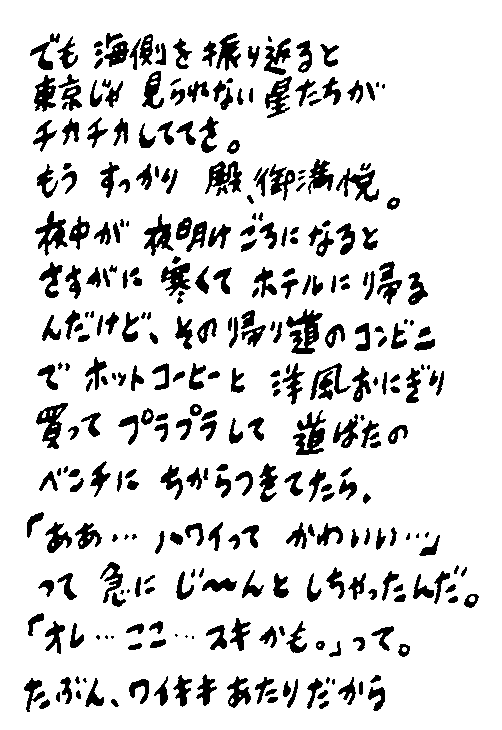 でも 海側を振り返ると
東京じゃ 見られない星たちが
チカチカしててさ。
もう すっかり 殿、御満悦。
夜中が 夜明けごろになると
さすがに 寒くて ホテルに帰る
んだけど、その帰り道のコンビニ
で ホットコーヒーと 洋風おにぎり
買って プラプラして 道ばたの
ベンチに ちからつきてたら、
「ああ… ハワイって かわいい…」
って 急に じ〜〜んと しちゃったんだ。
「オレ… ここ… スキかも。」って。
たぶん、ワイキキあたりだから